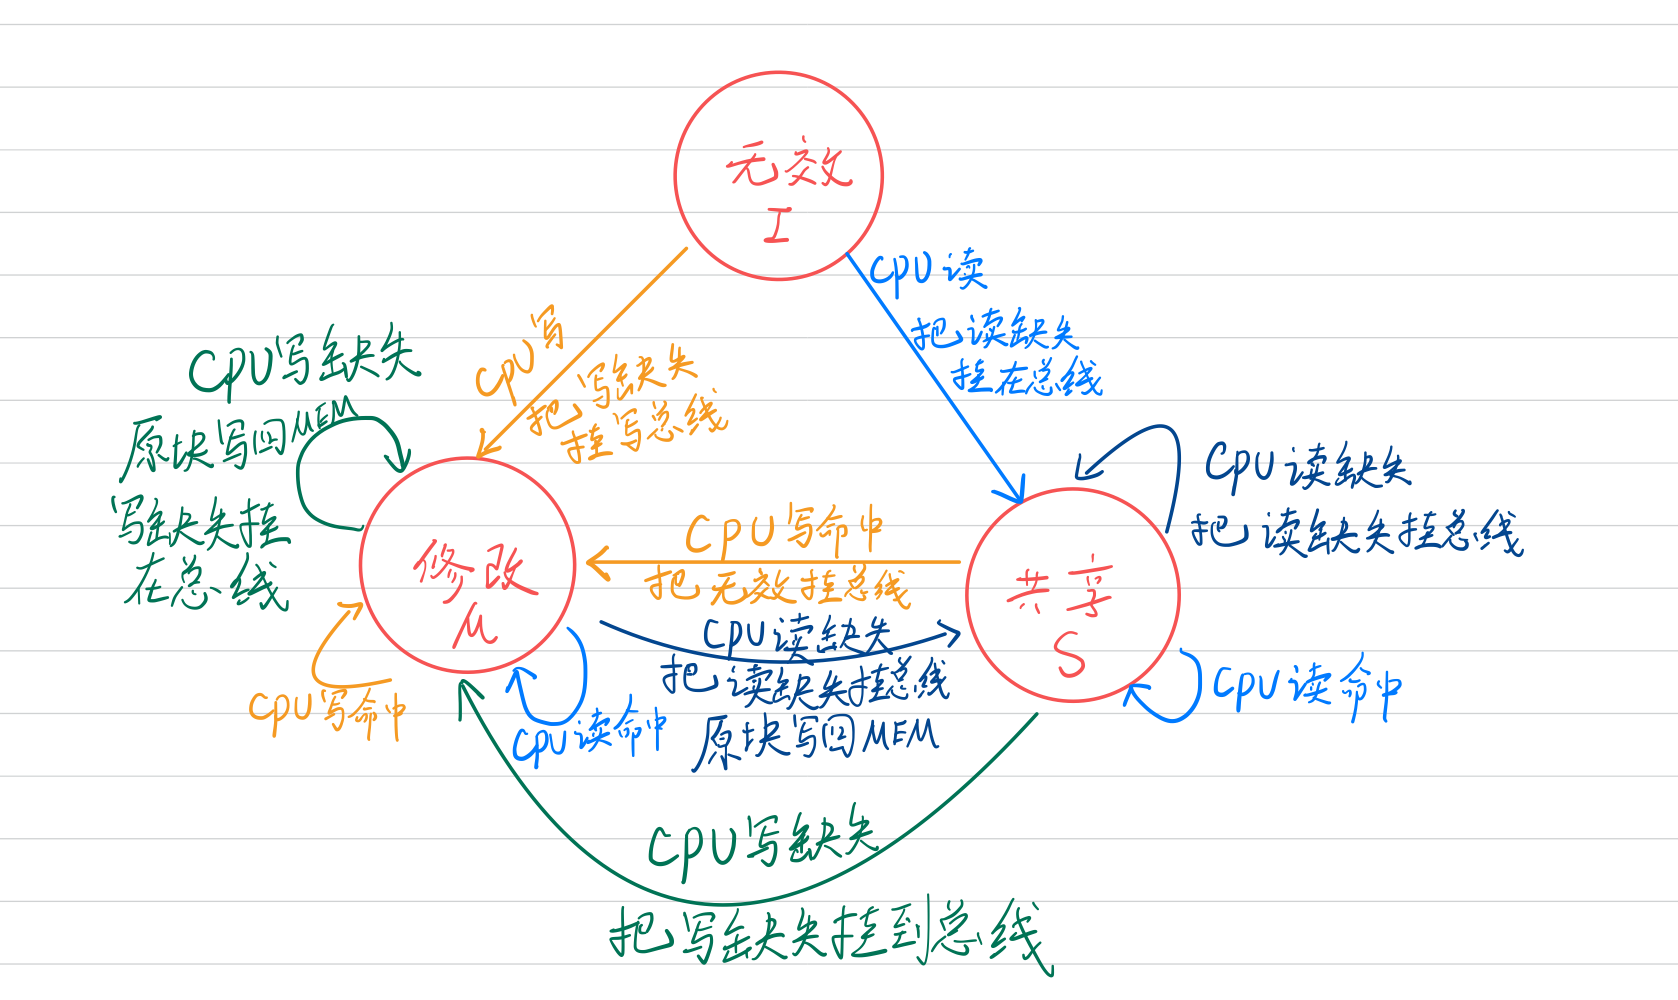 无效
I
CPU读
把读缺失
挂在总线
CPU写
把写缺失
挂写总线
CPU写缺失
原块写回MEM
写缺失挂
在总线
CPU读缺失
把读缺失挂总线
CPU写命中
把无效挂总线
修改
M
共享
S
CPU读缺失
把读缺失挂总线
原块写回MEM
CPU写命中
CPU读命中
CPU读命中
CPU写缺失
把写缺失挂到总线